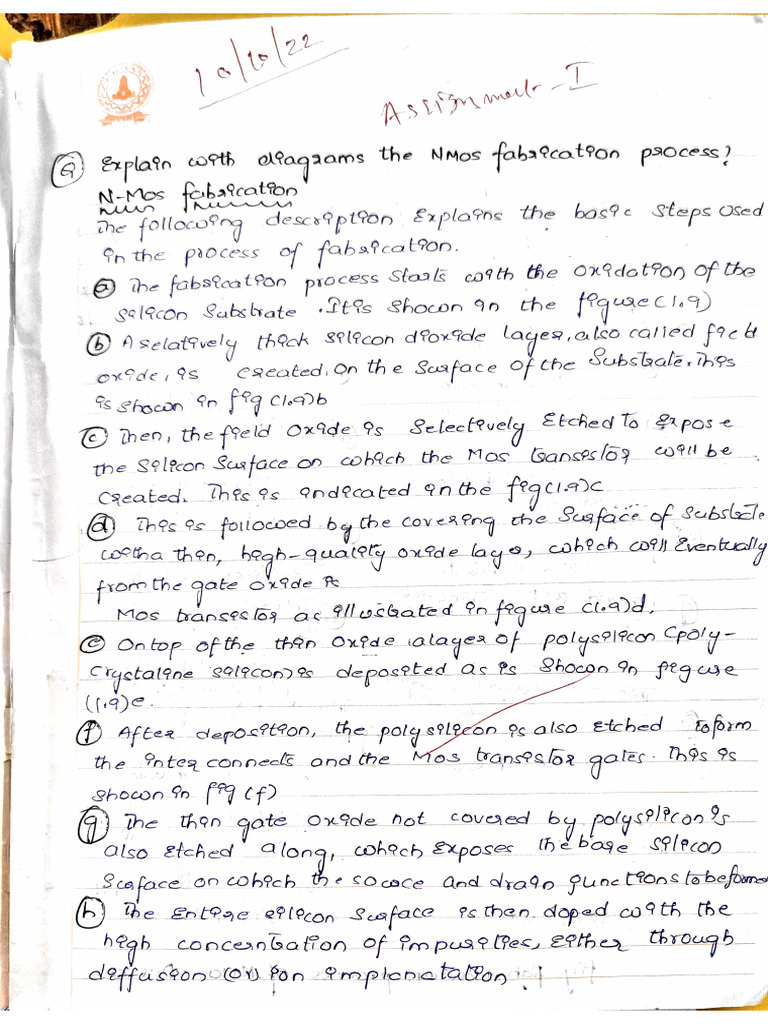 10/10/22
Assignment - I
Q Explain with diagrams the NMos fabrication process?
N-Mos fabrication
The following description Explains the basic steps used
in the process of fabrication.
a The fabrication process starts with the oxidation of the
selicon substrate .Itis shown in the figure(1.9)
b A relatively thick silicon dioxide layer, also called field
oxide, is created, on the surface of the substrate. This
is shown in fig (1.9)b
c Then, the field oxide is selectively Etched to Expose
the Silicon Surface on which the Mos transistor will be
created. This is indicated in the fig(1.9)c
d This is followed by the covering the surface of substrate
witha thin, high-quality oxide laye, which will Eventually
from the gate oxide
Mos transistor as illustrated in figure (1.9)d.
e On top of the thin oxide alayer of polysilicon (poly-
crystaline silicon) is deposited as is shown in figure
(1.9)e.
f After deposition, the polysilicon is also Etched toform
the inter connects and the Mos transistor gates. This is
shown in fig (f)
g The thin gate oxide not covered by polysilicon is
also Etched along, which Exposes the bare silicon
surface on which the source and drain junctions to be formed
h The Entire silicon surface is then doped with the
high concentration of impurities, Either through
diffusion (or) ion implanatation.